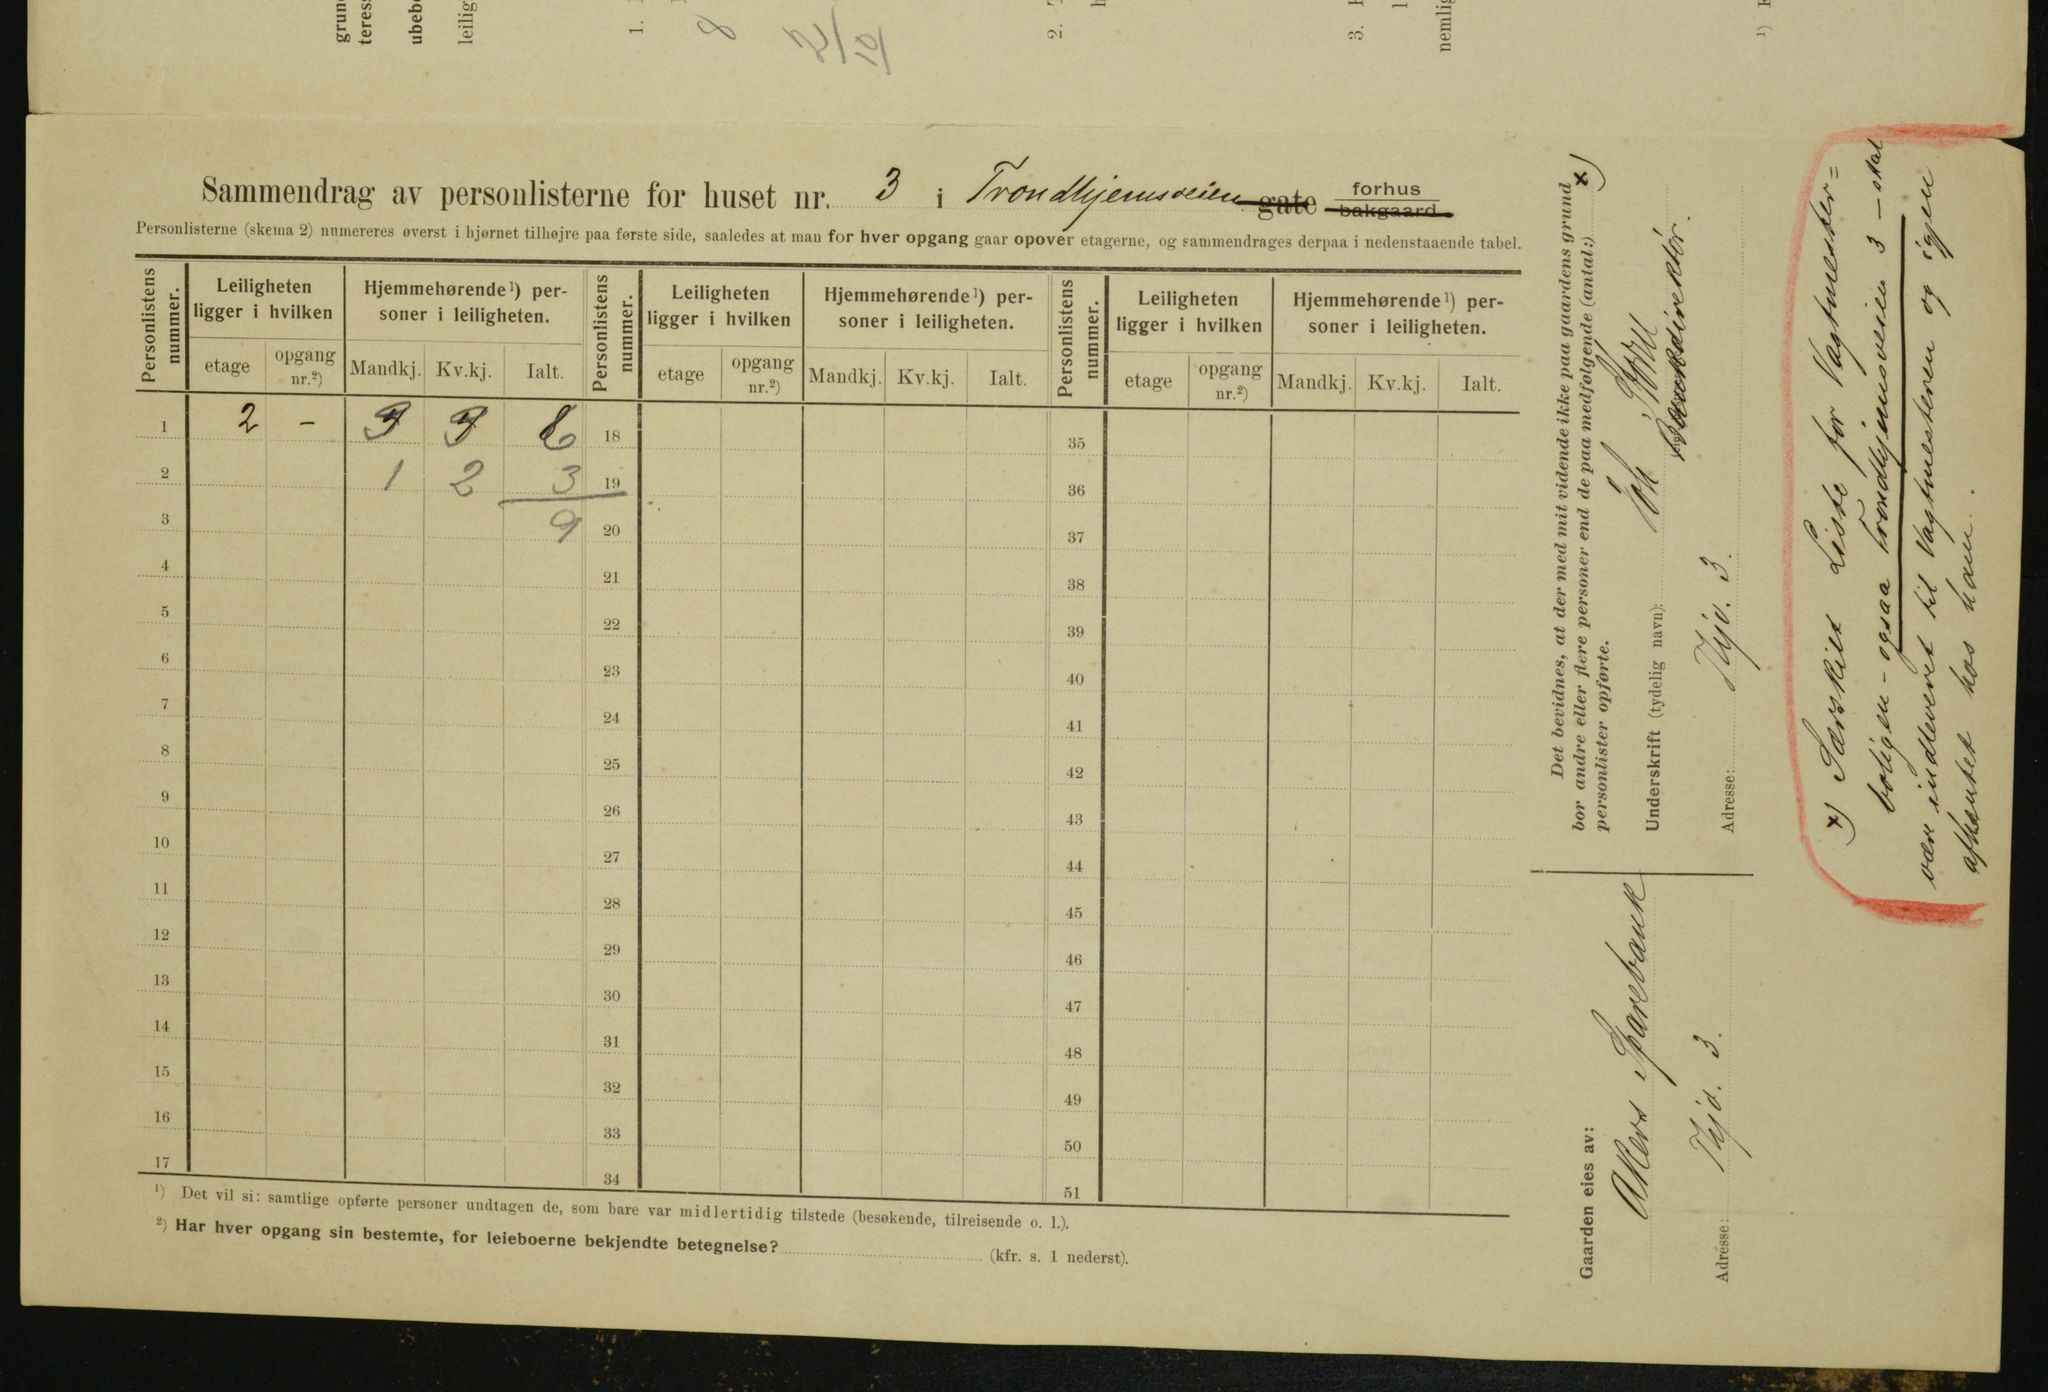 grun
teress
ubebo
leilig
1.
8
2.
3.
nemlig
¹)
Sammendrag av personlisterne for huset nr. 3 i Trondhjemsveien gate forhus
bakgaard
Personlisterne (skema 2) numereres øverst i hjørnet tilhøjre paa første side, saaledes at man for hver opgang gaar opover etagerne, og sammendrages derpaa i nedenstaaende tabel.
Personlistens nummer. Leiligheten ligger i hvilken Hjemmehørende¹) personer i leiligheten. Personlistens nummer. Leiligheten ligger i hvilken Hjemmehørende¹) personer i leiligheten. Personlistens nummer. Leiligheten ligger i hvilken Hjemmehørende¹) personer i leiligheten.
etage opgang nr.²) Mandkj. Kv.kj. Ialt. etage opgang nr.²) Mandkj. Kv.kj. Ialt. etage opgang nr.²) Mandkj. Kv.kj. Ialt.
1 2 – 3 3 6 18 35
2 1 2 3 19 36
3 9 20 37
4 21 38
5 22 39
6 23 40
7 24 41
8 25 42
9 26 43
10 27 44
11 28 45
12 29 46
13 30 47
14 31 48
15 32 49
16 33 50
17 34 51
¹) Det vil si: samtlige opførte personer undtagen de, som bare var midlertidig tilstede (besøkende, tilreisende o. l.).
²) Har hver opgang sin bestemte, for leieboerne bekjendte betegnelse? (kfr. s. 1 nederst).
Det bevidnes, at der med mit vidende ikke paa gaardens grund
bor andre eller flere personer end de paa medfølgende (antal:) x)
personlister opførte.
Underskrift (tydelig navn): Joh
Bankdirektør.
Adresse: Thjv. 3.
Gaarden eies av:
Akers Sparebank
Adresse: Thjv. 3.
x) Særskilt Liste for Vagtmester=
boligen – ogsaa Trondhjemsveien 3 – skal
være indleveret til Vagtmesteren og igjen
afhentet hos ham.